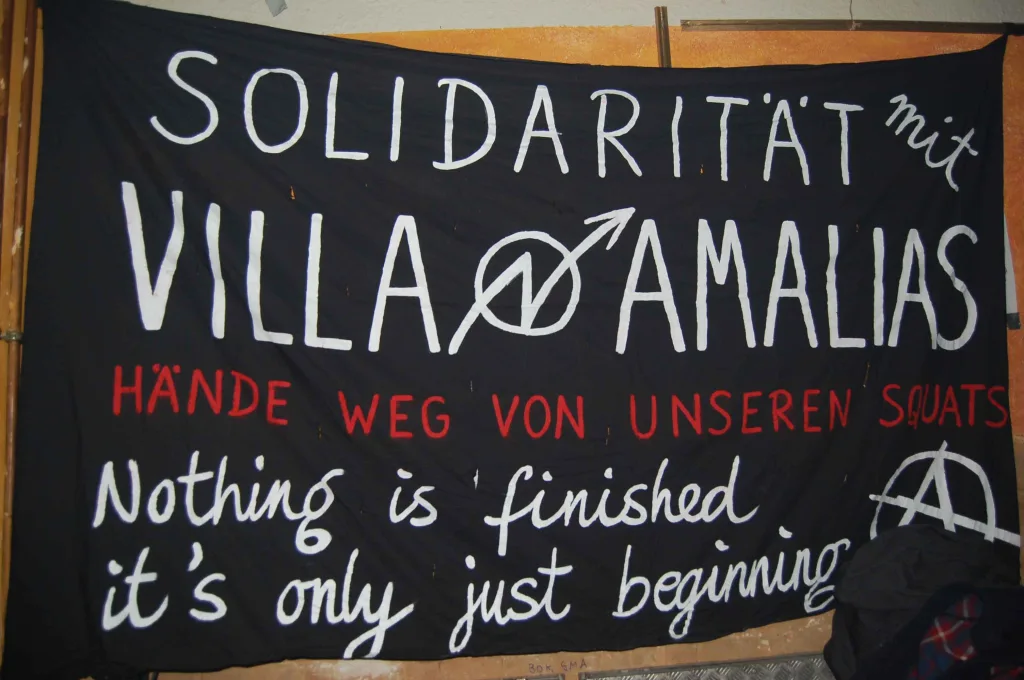 SOLIDARITÄT mit
VILLA AMALIAS
HÄNDE WEG VON UNSEREN SQUATS
Nothing is finished
it's only just beginning